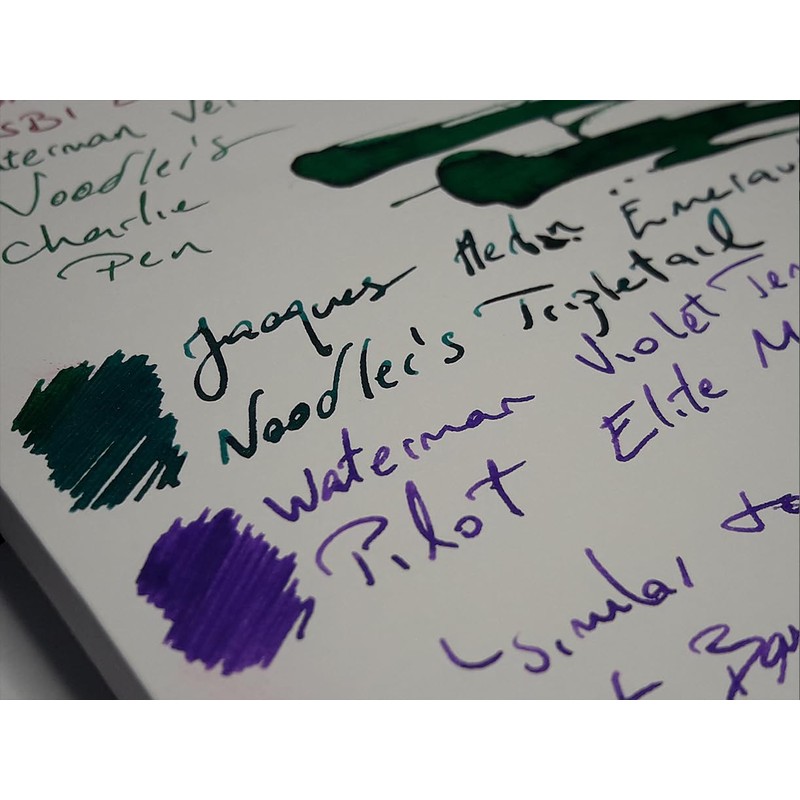 SBI
Waterman Ver
Noodler's
Charlie
Pen
Jacques Herbin Emerau
Noodler's Tripletail
Waterman Violet Ten
Pilot Elite M
similar to